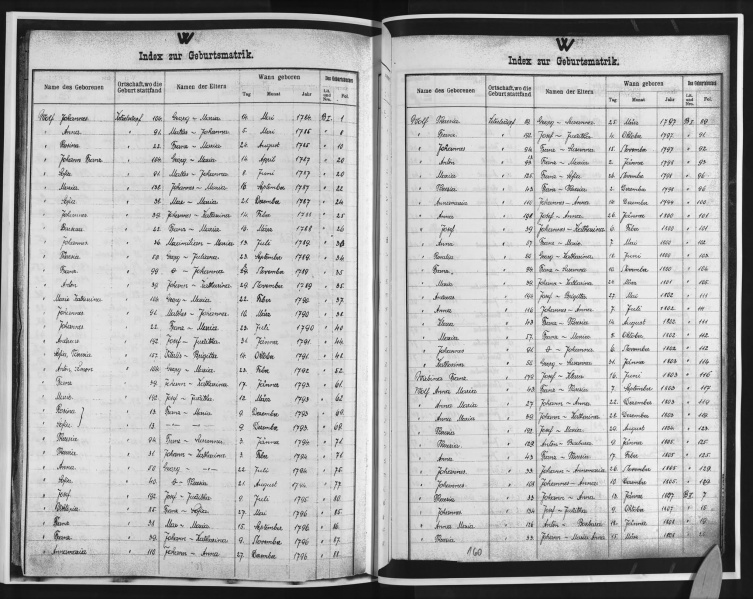 W
Index zur Geburtsmatrik.
Name des Geborenen Ortschaft, wo die Geburt stattfand Namen der Eltern Wann geboren Des Geburtsbuches
Tag Monat Jahr Lit. und Nro. Fol.
Wolf Johannes 104 Georg ~ Maria Mai 1784 B I. 1
" Anna 91 Mathes ~ Johanna 5 Mai 1785
" Rosina 22 Franz ~ Maria 24 August 10
" Johann Franz 104 Georg ~ Maria 14 April 1787 20
" Sofia 91 Mathes ~ Johanna 8 Juni 1787 20
" Maria 138 Johannes ~ Maria 16 September 1787 22
" Sofia 36 Max ~ Maria 21 Dezember 1787 24
" Johannes 39 Johannes ~ Katharina 14 Feber 25
" Barbara 22 Franz ~ Maria 13 März 1788 26
" Johannes 36 Maximilian ~ Maria 13 Juli 1789 30
" Theresia 50 Georg ~ Juliana 23 September 1789 34
" Franz 99 ~ Johanna 29 November 1789 35
" Anton 39 Johann ~ Katharina 29 November 1789 35
" Maria Katharina 104 Georg ~ Maria 22 Feber 1790 37
" Johannes 91 Mathes ~ Johanna 16 März 1790
" Johannes 22 Franz ~ Maria 23 Juli 1790 40
" Andreas 192 Josef ~ Juditha Jänner 1791 44
" Sofia, Theresia 157 ~ Brigitta 14 Oktober 1791
" Anton, 104 Georg ~ Maria 23 Feber 1792 52
" Franz 39 Johann ~ Katharina 17 Jänner 1793 61
" Maria 192 Josef ~ Juditha 12 März 1793 62
" Rosina 13 Franz ~ Maria 9 Dezember 1793 69
" Sofia 13 — ~ — 9 Dezember 1793 69
" Theresia 94 Franz ~ Susanna 3 Jänner 1794 71
" Theresia 31 Johann ~ Katharina 3 Feber 1794 71
" Anna 50 Georg — ~ — 22 Juli 1794 75
" Sofia 40 ~ Theresia 21 August 77
" Josef 192 Josef ~ Juditha 9 Juli 1795
" Viktoria 25 Franz ~ Sofia 27 Mai 1796 85
" Franz 38 Max ~ Maria 15 September 1796 86
" Franz 39 Johann ~ Katharina 9 November 1796 87
" Annamaria 116 Johann ~ Anna 27 Dezember 1796 88
W
Index zur Geburtsmatrik.
Name des Geborenen Ortschaft, wo die Geburt stattfand Namen der Eltern Wann geboren Des Geburtsbuches
Tag Monat Jahr Lit. und Nro. Fol.
Wolf Theresia Georg ~ Susanna 25 März 1797 B I 89
" Franz 192 Josef ~ Juditha 4 Oktober 1797 91
" Johannes 94 Franz ~ Susanna 15 November 1797 92
" Anton 93 Franz ~ Maria 2 Jänner 1798 93
" Maria 125 Franz ~ Sofia 26 November 1798 96
" Theresia 43 Franz ~ Theresia 2 Dezember 1798 96
" Annamaria 110 Johannes ~ Anna 10 Dezember 1799 100
" Anna 198 Josef ~ Anna 26 Jänner 1800 101
" Josef 39 Johannes ~ Katharina 6 Feber 1800 101
" Anna 57 Franz ~ Maria 7 Mai 1800 102
" Rosalia Georg ~ Katharina 16 Juni 1800 103
" Franz 94 Franz ~ Susanna 10 November 1800 104
" Maria 39 Johann ~ Katharina 20 März 1801 105
" Andreas 194 Josef ~ Brigitta 27 Mai 1802 111
" Anna 116 Johannes ~ Anna 7 Juli 1802 111
" Klara 43 Franz ~ Theresia 14 August 1802 111
" Maria 57 Franz ~ Maria 8 Oktober 1802 112
" Johannes 91 ~ Johanna 6 November 1802 112
" Katharina 56 Georg ~ Susanna Jänner 1803 114
Franz 176 Josef ~ Klara 16 Juni 1803 116
Wolf Anna Maria 43 Franz ~ Theresia 7 September 1803 117
" Anna Maria 27 Johann ~ Anna 22 Dezember 1803 119
" Anna Maria 39 Johann ~ Katharina 28 Dezember 1803 119
" Theresia 192 Josef ~ Maria 20 August 1804 123
" Theresia 129 Anton ~ Barbara 9 Jänner 1805 125
" Anna 43 Franz ~ Theresia 17 Feber 1805 125
" Johannes 33 Johann ~ Annamaria 26 November 1805 129
" Johannes 103 Johannes ~ Anna 10 Dezember 1805 129
" Theresia 33 Johann ~ Anna 13 Jänner 1807 B I. 7
" Johannes 134 Josef ~ Juditha 9 Oktober 1807 15
" Anna Maria 126 Anton ~ Barbara 18 Jänner 1808
" Theresia 33 Johann ~ Maria Anna 15 März 1808
160